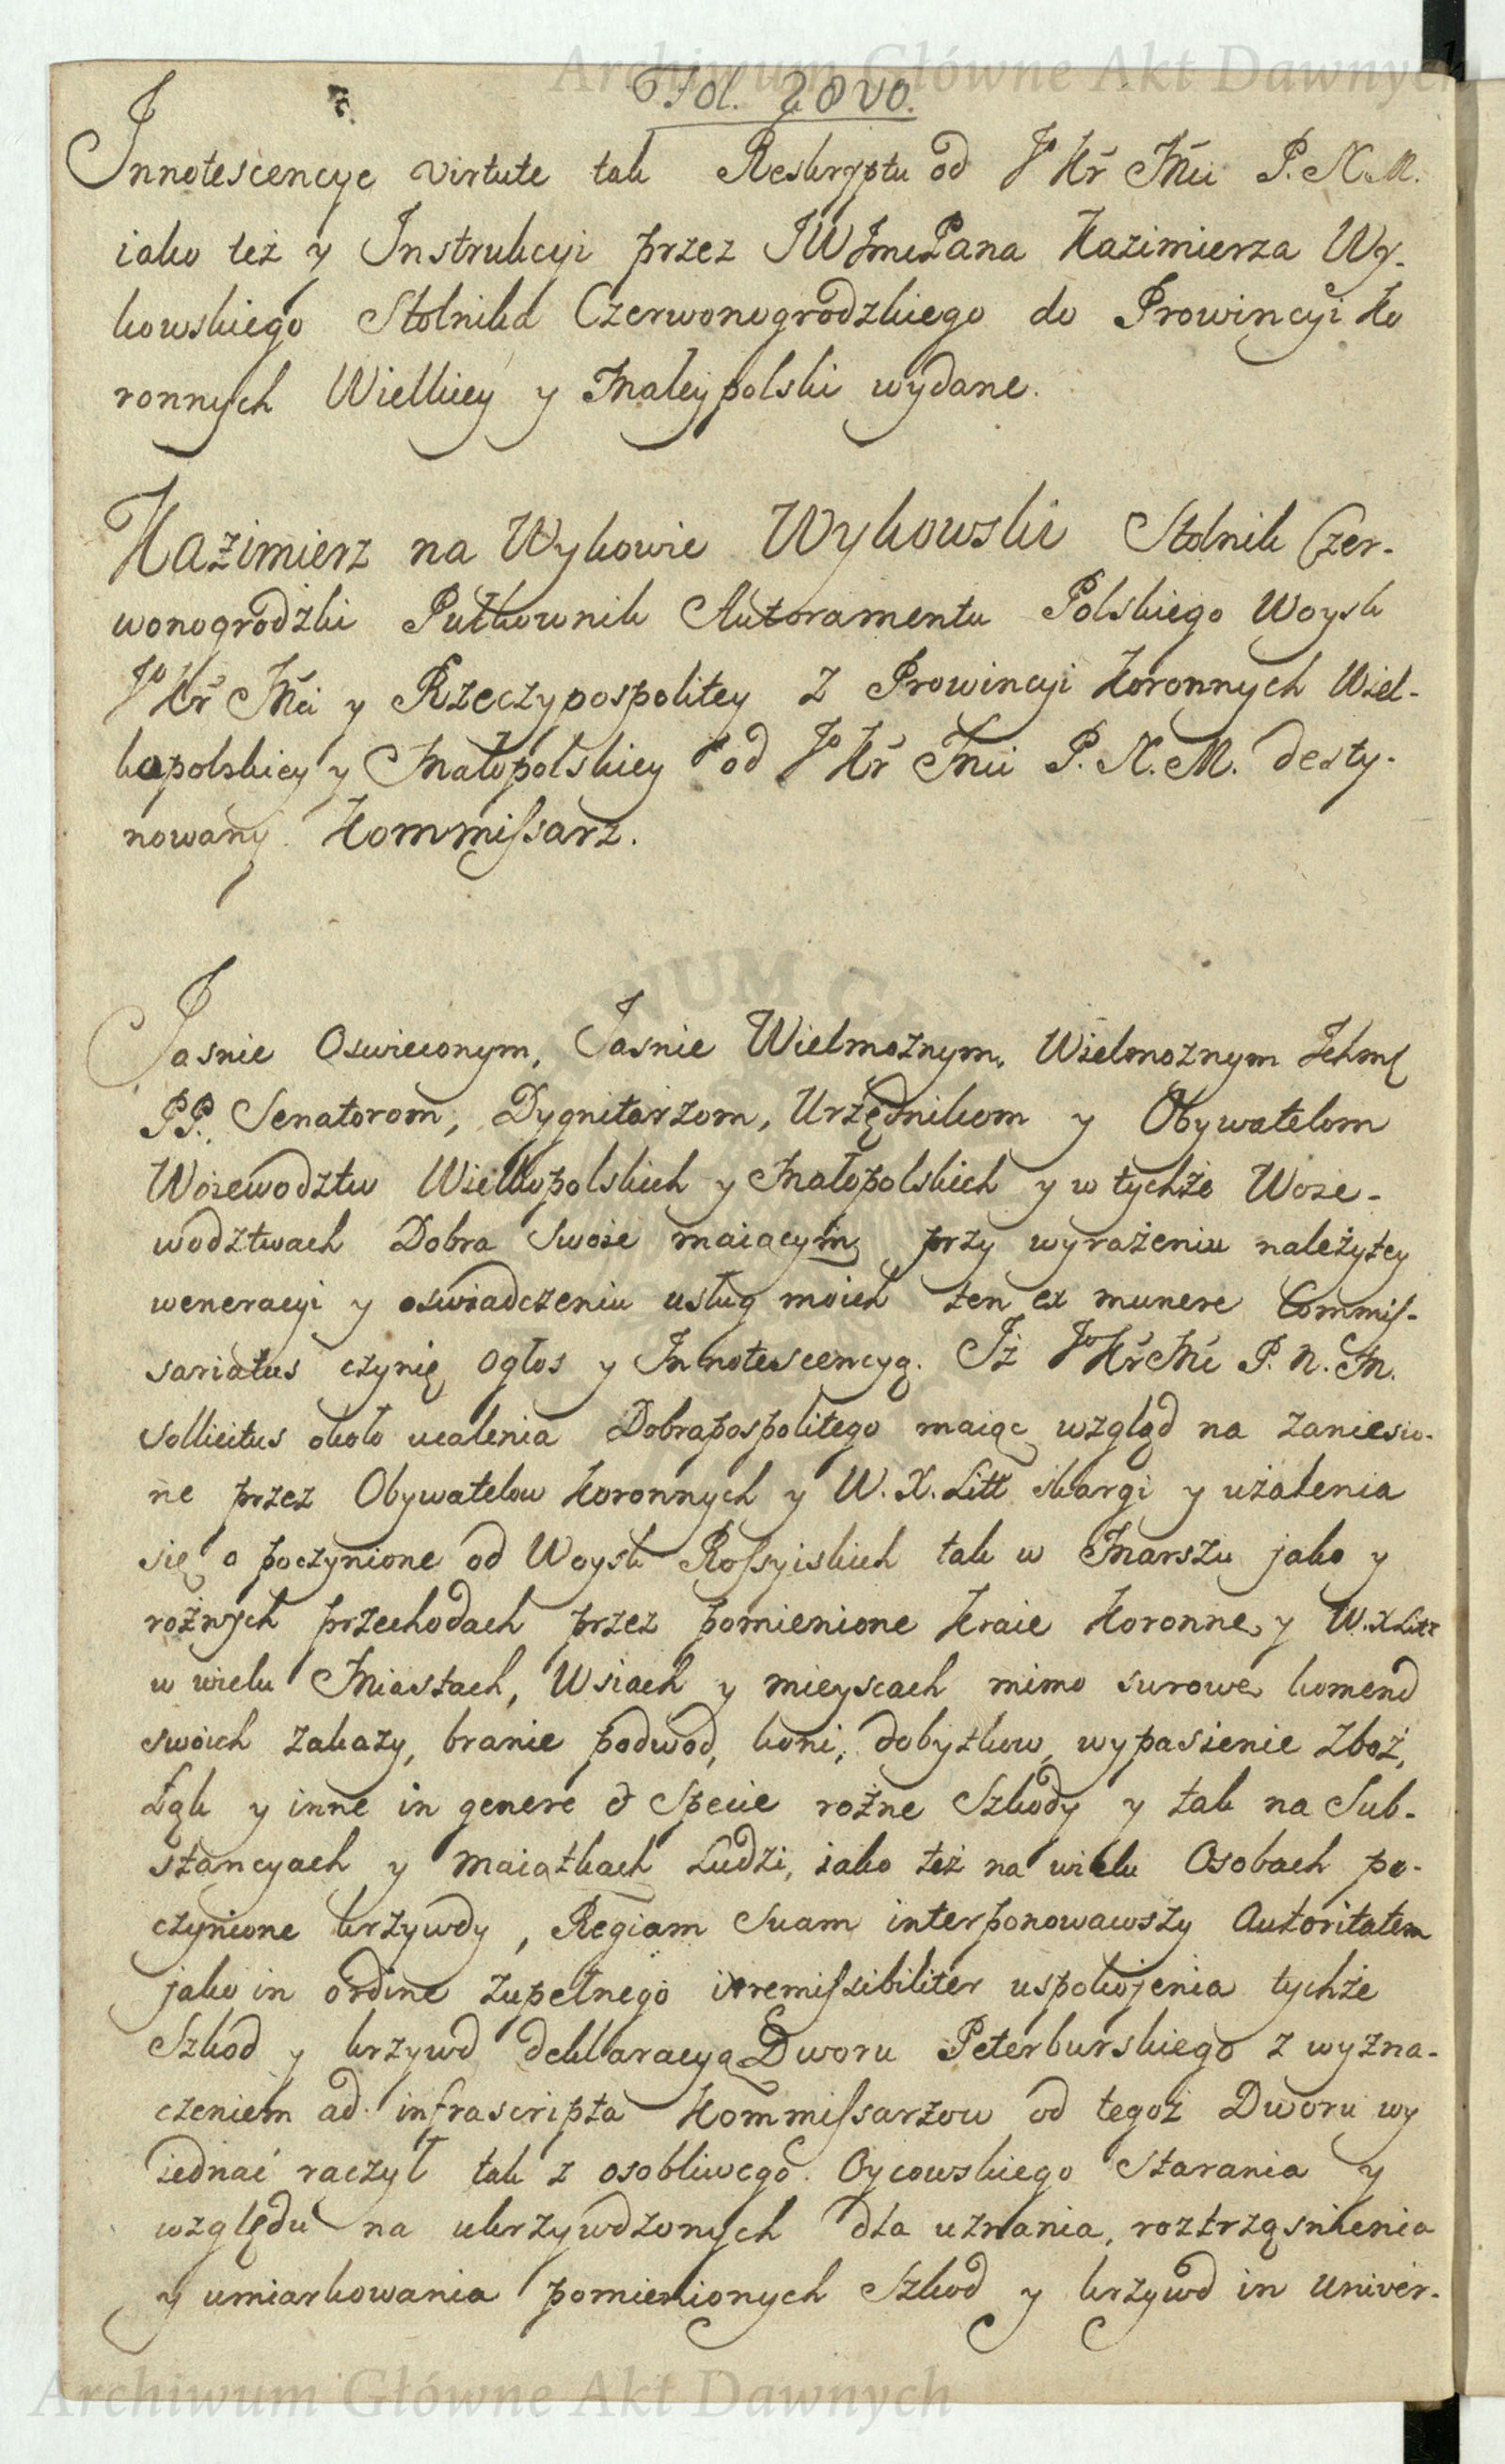 Fol. 28 vo.
Innotescencye virtute tak Reskryptu od JoKr Mci P. N. M.
iako też y Instrukcyi przez JWJmcPana Kazimierza Wy-
kowskiego Stolnika Czerwonogrodzkiego do Prowincyi Ko
ronnych Wielkiey y Maleypolski wydane.
Kazimierz na Wykowie Wykowski Stolnik Czer-
wonogrodzki Pułkownik Autoramentu Polskiego Woysk
JoKr Mci y Rzeczypospolitey z Prowincyi Koronnych Wiel-
kopolskiey y Małopolskiey od JoKr Mci P. N. M. desty-
nowany Kommissarz.
Jasnie Oswieconym, Jasnie Wielmoznym, Wielmoznym Ichmć
PP. Senatorom, Dygnitarzom, Urzędnikom y Obywatelom
Woiewodztw Wielkopolskich y Małopolskich y w tychże Woie-
wodztwach Dobra Swoie maiącym przy wyrażeniu należytey
weneracyi y oswiadczeniu usług moich ten ex munere Commis-
sariatus czynię ogłos y Innotescencyą. Iż JoKrMci P. N. M.
sollicitus około ucalenia Dobrapospolitego maiąc wzgląd na zaniesio-
ne przez Obywatelow Koronnych y W. X. Litt skargi y użalenia
się o poczynione od Woysk Rossyiskich tak w Marszu jako y
rożnych przechodach przez pomienione Kraie Koronne y W. X Litt
w wielu Miastach, Wsiach y mieyscach mimo surowe komend
swoich zakazy, branie podwod, koni, dobytkow, wypasienie Zboż,
Łąk y inne in genere & Specie rożne Szkody y tak na Sub-
stancyach y maiątkach Ludzi, iako też na wielu Osobach po-
czynione krzywdy, Regiam Suam interponowawszy Autoritatem
jako in ordine zupełnego irremissibiliter uspokojenia tychże
Szkod y krzywd deklaracyą Dworu Peterburskiego z wyzna-
czeniem ad infrascripta Kommissarzow od tegoż Dworu wy
iednać raczył tak z osobliwego Oycowskiego Starania y
względu na ukrzywdzonych dla uznania, roztrząsnienia
y umiarkowania pomienionych Szkod y krzywd in univer-
Archiwum Główne Akt Dawnych